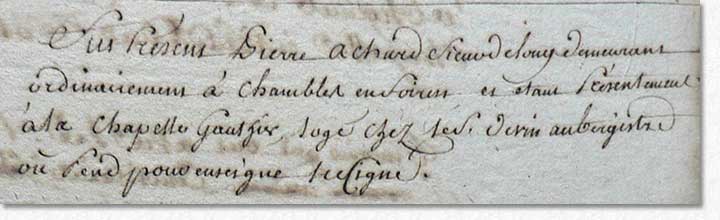 Fut Présent Pierre achard Sieur de lony demeurant
ordinairement à Chambles en foirest et etant Présentement
à la Chapelle Gauthier, logé chez le S. devin aubergiste
où Pend pour enseigne le Cigne.